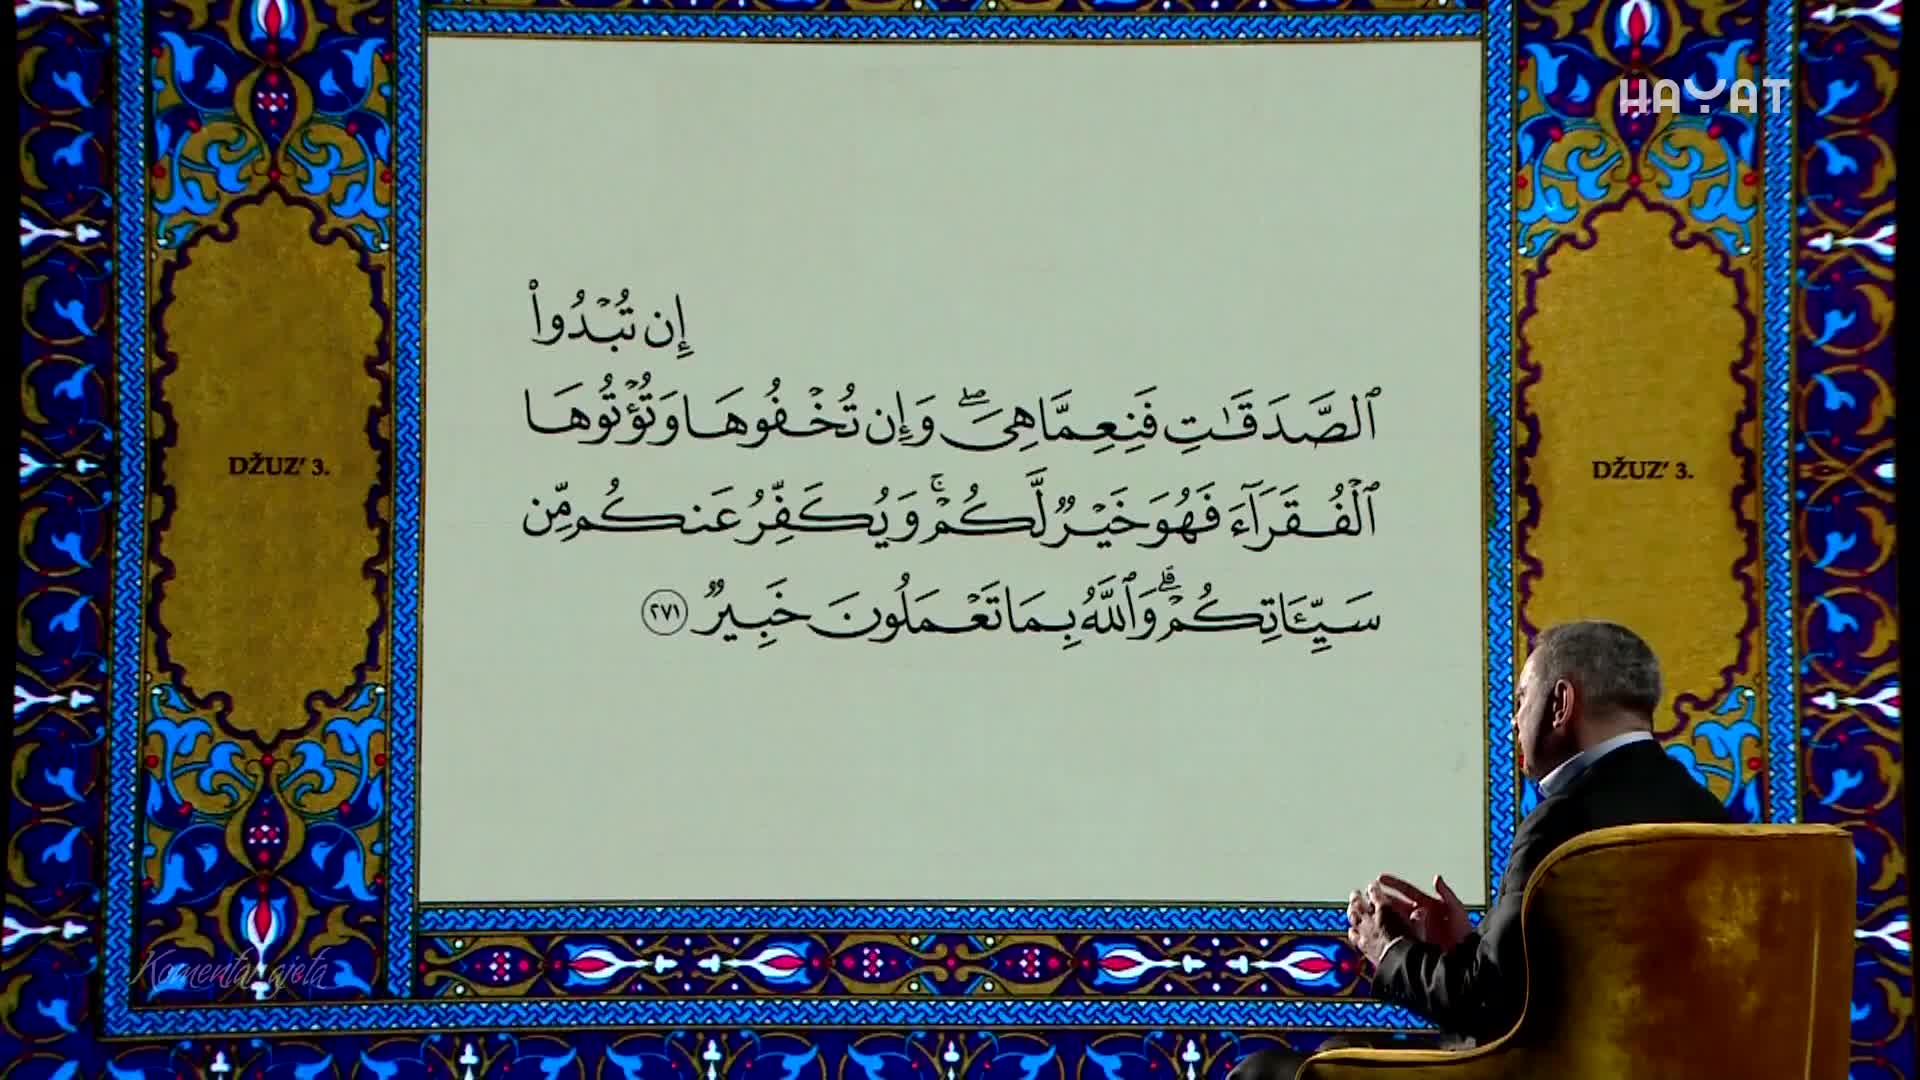 HAYAT
إِن تُبْدُوا۟
ٱلصَّدَقَـٰتِ فَنِعِمَّا هِىَ ۖ وَإِن تُخْفُوهَا وَتُؤْتُوهَا
ٱلْفُقَرَآءَ فَهُوَ خَيْرٌ لَّكُمْ ۚ وَيُكَفِّرُ عَنكُم مِّن
سَيِّـَٔاتِكُمْ ۗ وَٱللَّهُ بِمَا تَعْمَلُونَ خَبِيرٌ ٢٧١
DŽUZ’ 3.
DŽUZ’ 3.
Komentar ajeta